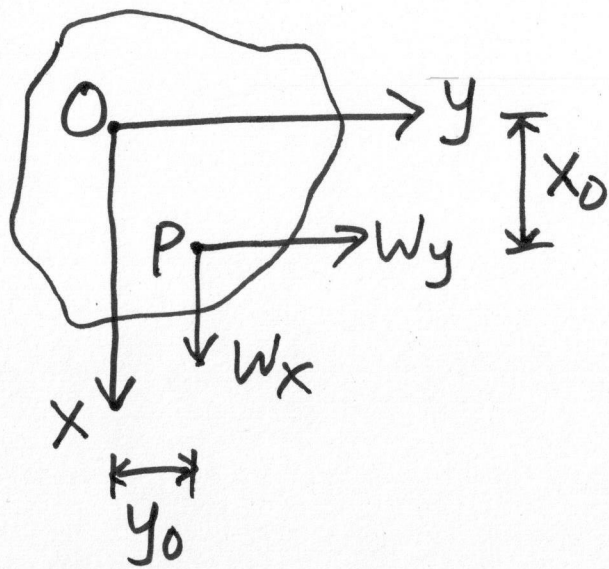 O
y
x₀
P
Wy
Wx
x
y₀